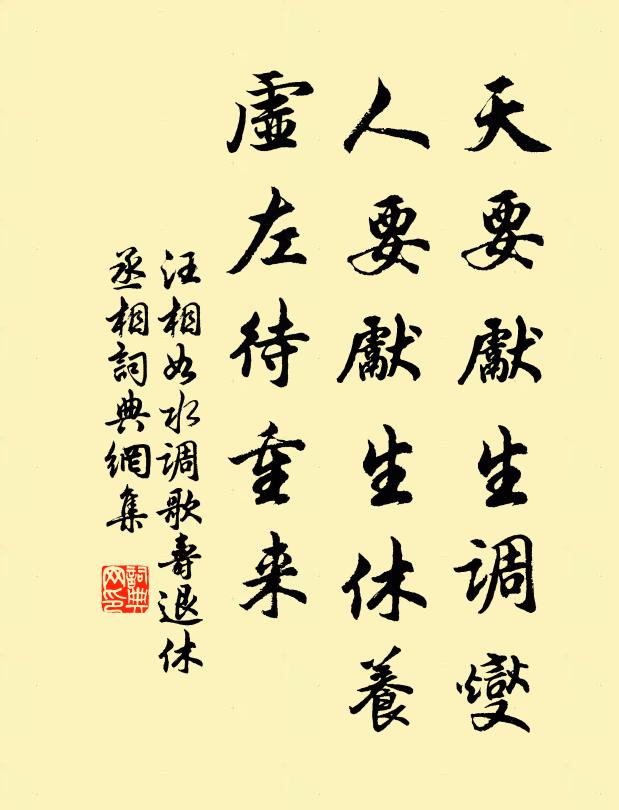 天要獻生调燮
人要獻生休養
虛左待重来
汪相如水调歌壽退休
丞相詞典網集
詞典網印